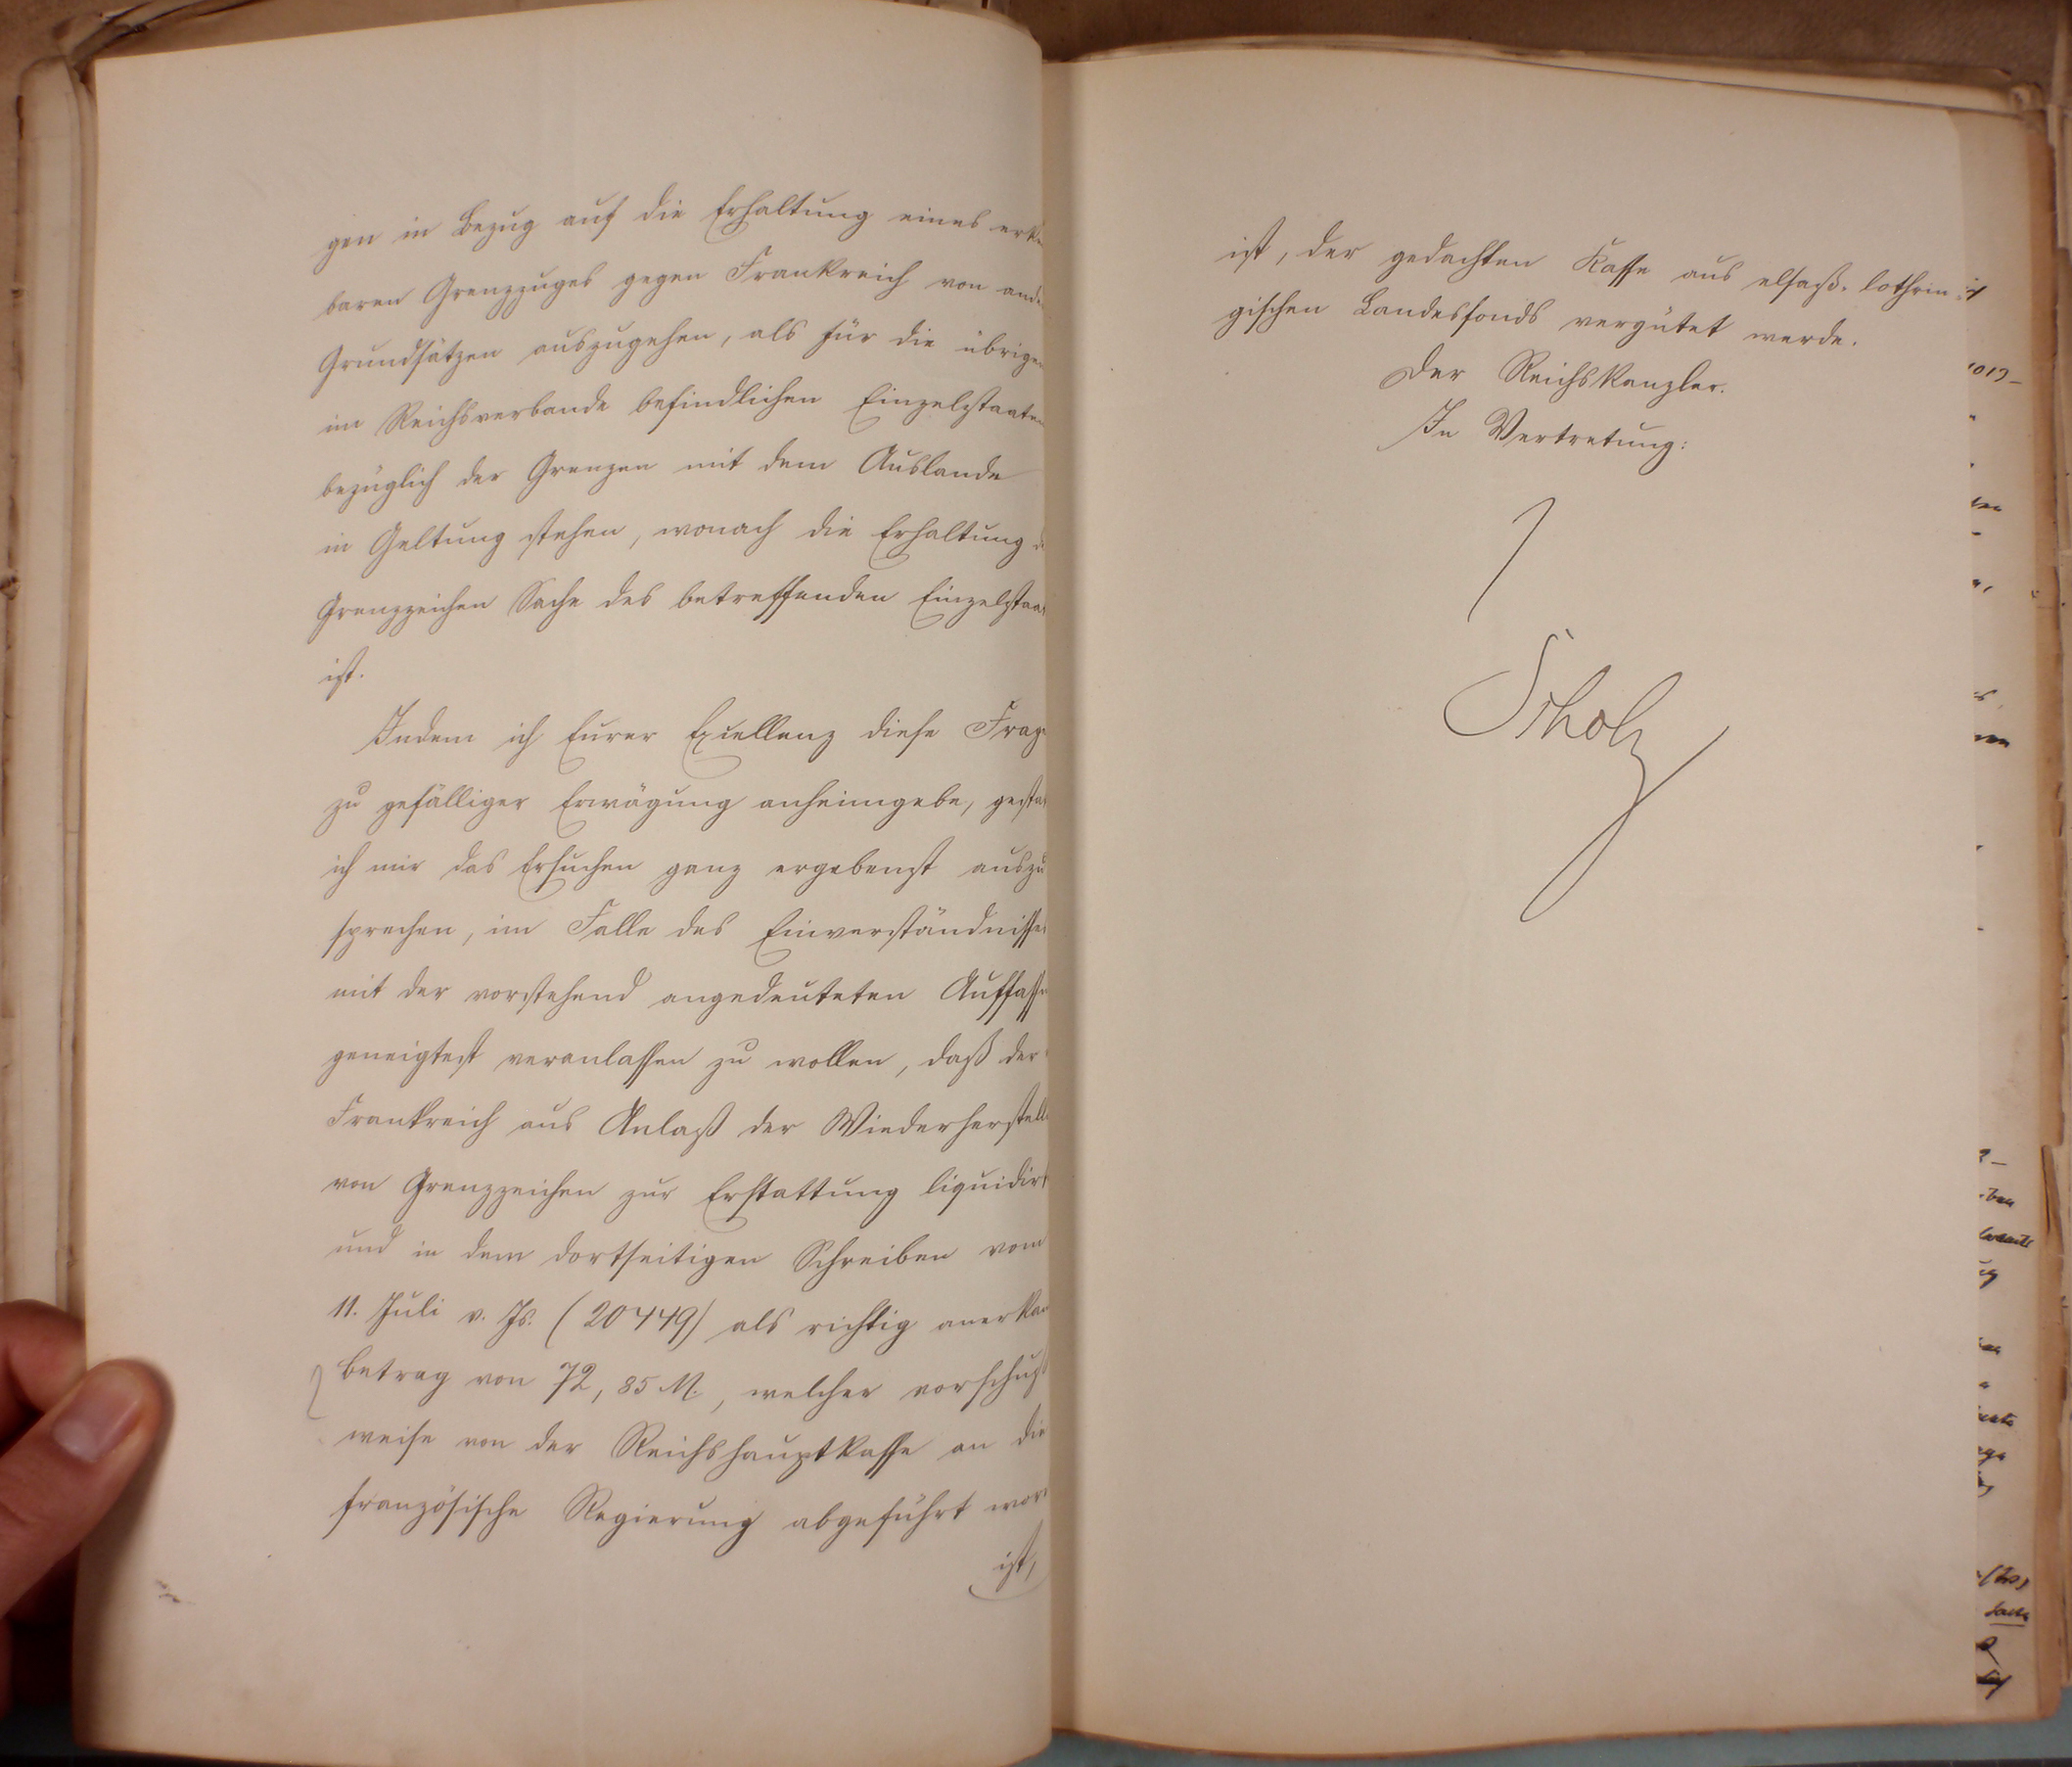 gen in Bezug auf die Erhaltung eines erke
baren Grenzzuges gegen Frankreich von ande
Grundsätzen auszugehen, als für die übrigen
im Reichsverbande befindlichen Einzelstaaten
bezüglich der Grenzen mit dem Auslande
in Geltung stehen, wonach die Erhaltung d
Grenzzeichen Sache des betreffenden Einzelstaat
ist.
Indem ich Eurer Excellenz diese Frage
zu gefälliger Erwägung anheimgebe, gestat
ich mir das Ersuchen ganz ergebenst auszu
sprechen, im Falle des Einverständnisses
mit der vorstehend angedeuteten Auffassu
geneigtest veranlassen zu wollen, daß der
Frankreich aus Anlaß der Wiederherstell
von Grenzzeichen zur Erstattung liquidirt
und in dem dortseitigen Schreiben vom
11. Juli v. Js. (20449) als richtig anerkan
Betrag von 72,85 M., welcher vorschuß
weise von der Reichshauptkasse an die
französische Regierung abgeführt wor
ist,
ist, der gedachten Kasse aus elsaß-lothrin
gischen Landesfonds vergütet werde.
Der Reichskanzler.
In Vertretung:
Scholz